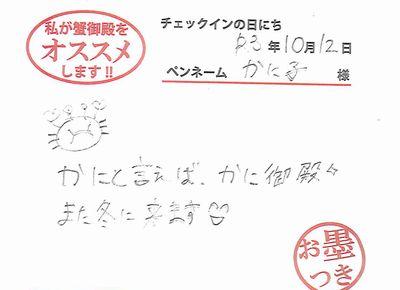 私が蟹御殿を
オススメ
します!!
チェックインの日にち
R3年10月12日
ペンネーム かに子 様
かにと言えば、かに御殿
また冬に来ます♡
お墨
つき